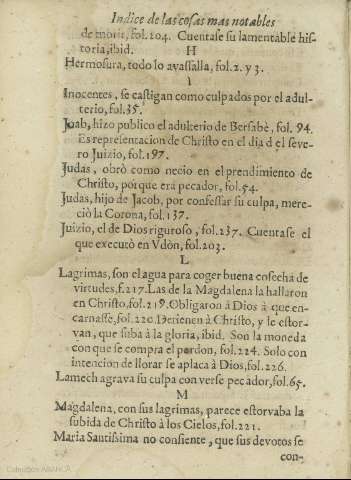 Indice de las cosas mas notables
de morir, fol. 204. Cuentase su lamentable his-
toria, ibid.
H
Hermosura, todo lo avassalla, fol. 2. y 3.
I
Inocentes, se castigan como culpados por el adul-
terio, fol. 35.
Joab, hizo publico el adulterio de Bersabè, fol. 94.
Es representacion de Christo en el dia del seve-
ro Juizio, fol. 197.
Judas, obrò como necio en el prendimiento de
Christo, porque era pecador, fol. 54.
Judas, hijo de Jacob, por confessar su culpa, mere-
ciò la Corona, fol. 137.
Juizio, el de Dios riguroso, fol. 237. Cuentase el
que executò en Vdòn, fol. 203.
L
Lagrimas, son el agua para coger buena cosecha de
virtudes, f. 217. Las de la Magdalena la hallaron
en Christo, fol. 219. Obligaron à Dios à que en-
carnasse, fol. 220. Detienen à Christo, y le estor-
van, que suba à la gloria, ibid. Son la moneda
con que se compra el perdon, fol. 224. Solo con
intencion de llorar se aplaca à Dios, fol. 226.
Lamech agrava su culpa con verse pecador, fol. 65.
M
Magdalena, con sus lagrimas, parece estorvaba la
subida de Christo à los Cielos, fol. 221.
Maria Santissima no consiente, que sus devotos se
con-